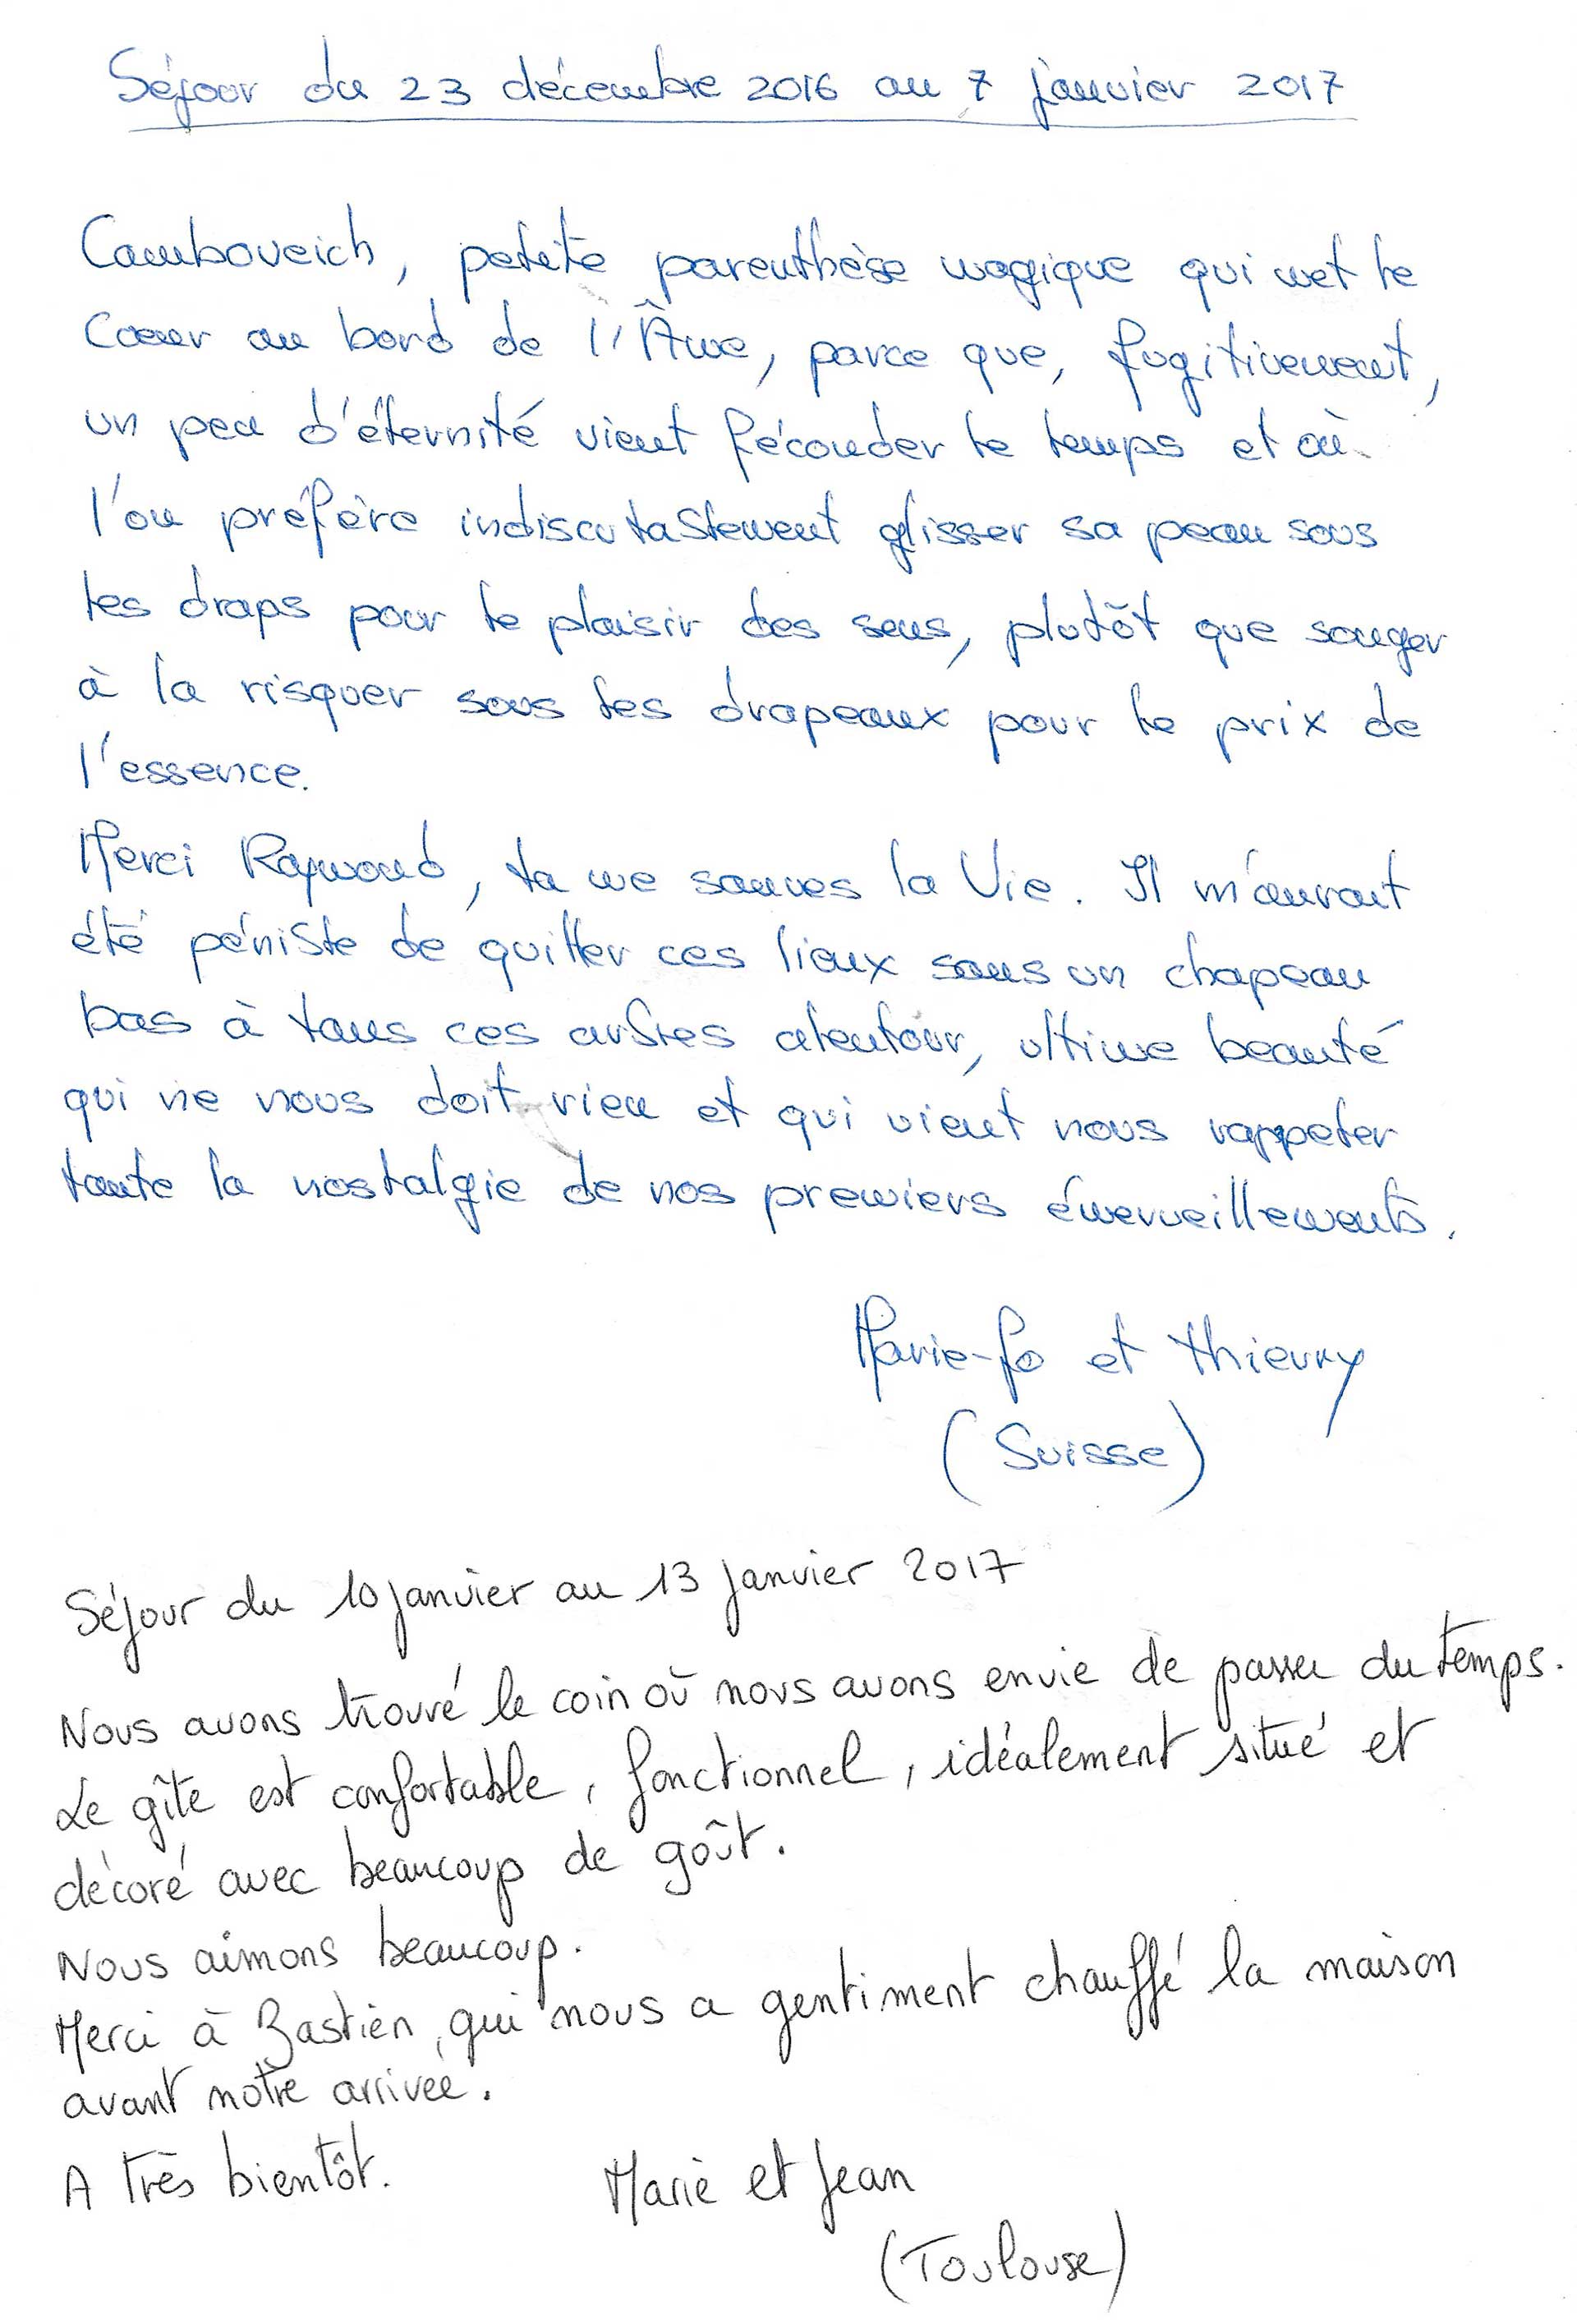 Séjour du 23 décembre 2016 au 7 janvier 2017
Camboveich, petite parenthèse magique qui met le
Coeur au bord de l'Âme, parce que, fugitivement,
un peu d'éternité vient féconder le temps et où
l'on préfère indiscutablement glisser sa peau sous
les draps pour le plaisir des sens, plutôt que songer
à la risquer sous les drapeaux pour le prix de
l'essence.
Merci Raymond, tu me sauves la Vie. Il m'aurait
été pénible de quitter ces lieux sans un chapeau
bas à tous ces arbres alentour, ultime beauté
qui ne nous doit rien et qui vient nous rappeler
toute la nostalgie de nos premiers émerveillements.
Marie-Jo et Thierry
(Suisse)
Séjour du 10 janvier au 13 janvier 2017
Nous avons trouvé le coin où nous avons envie de passer du temps.
Le gîte est confortable, fonctionnel, idéalement situé et
décoré avec beaucoup de goût.
Nous aimons beaucoup.
Merci à Bastien, qui nous a gentiment chauffé la maison
avant notre arrivée.
A très bientôt.
Marie et Jean
(Toulouse)